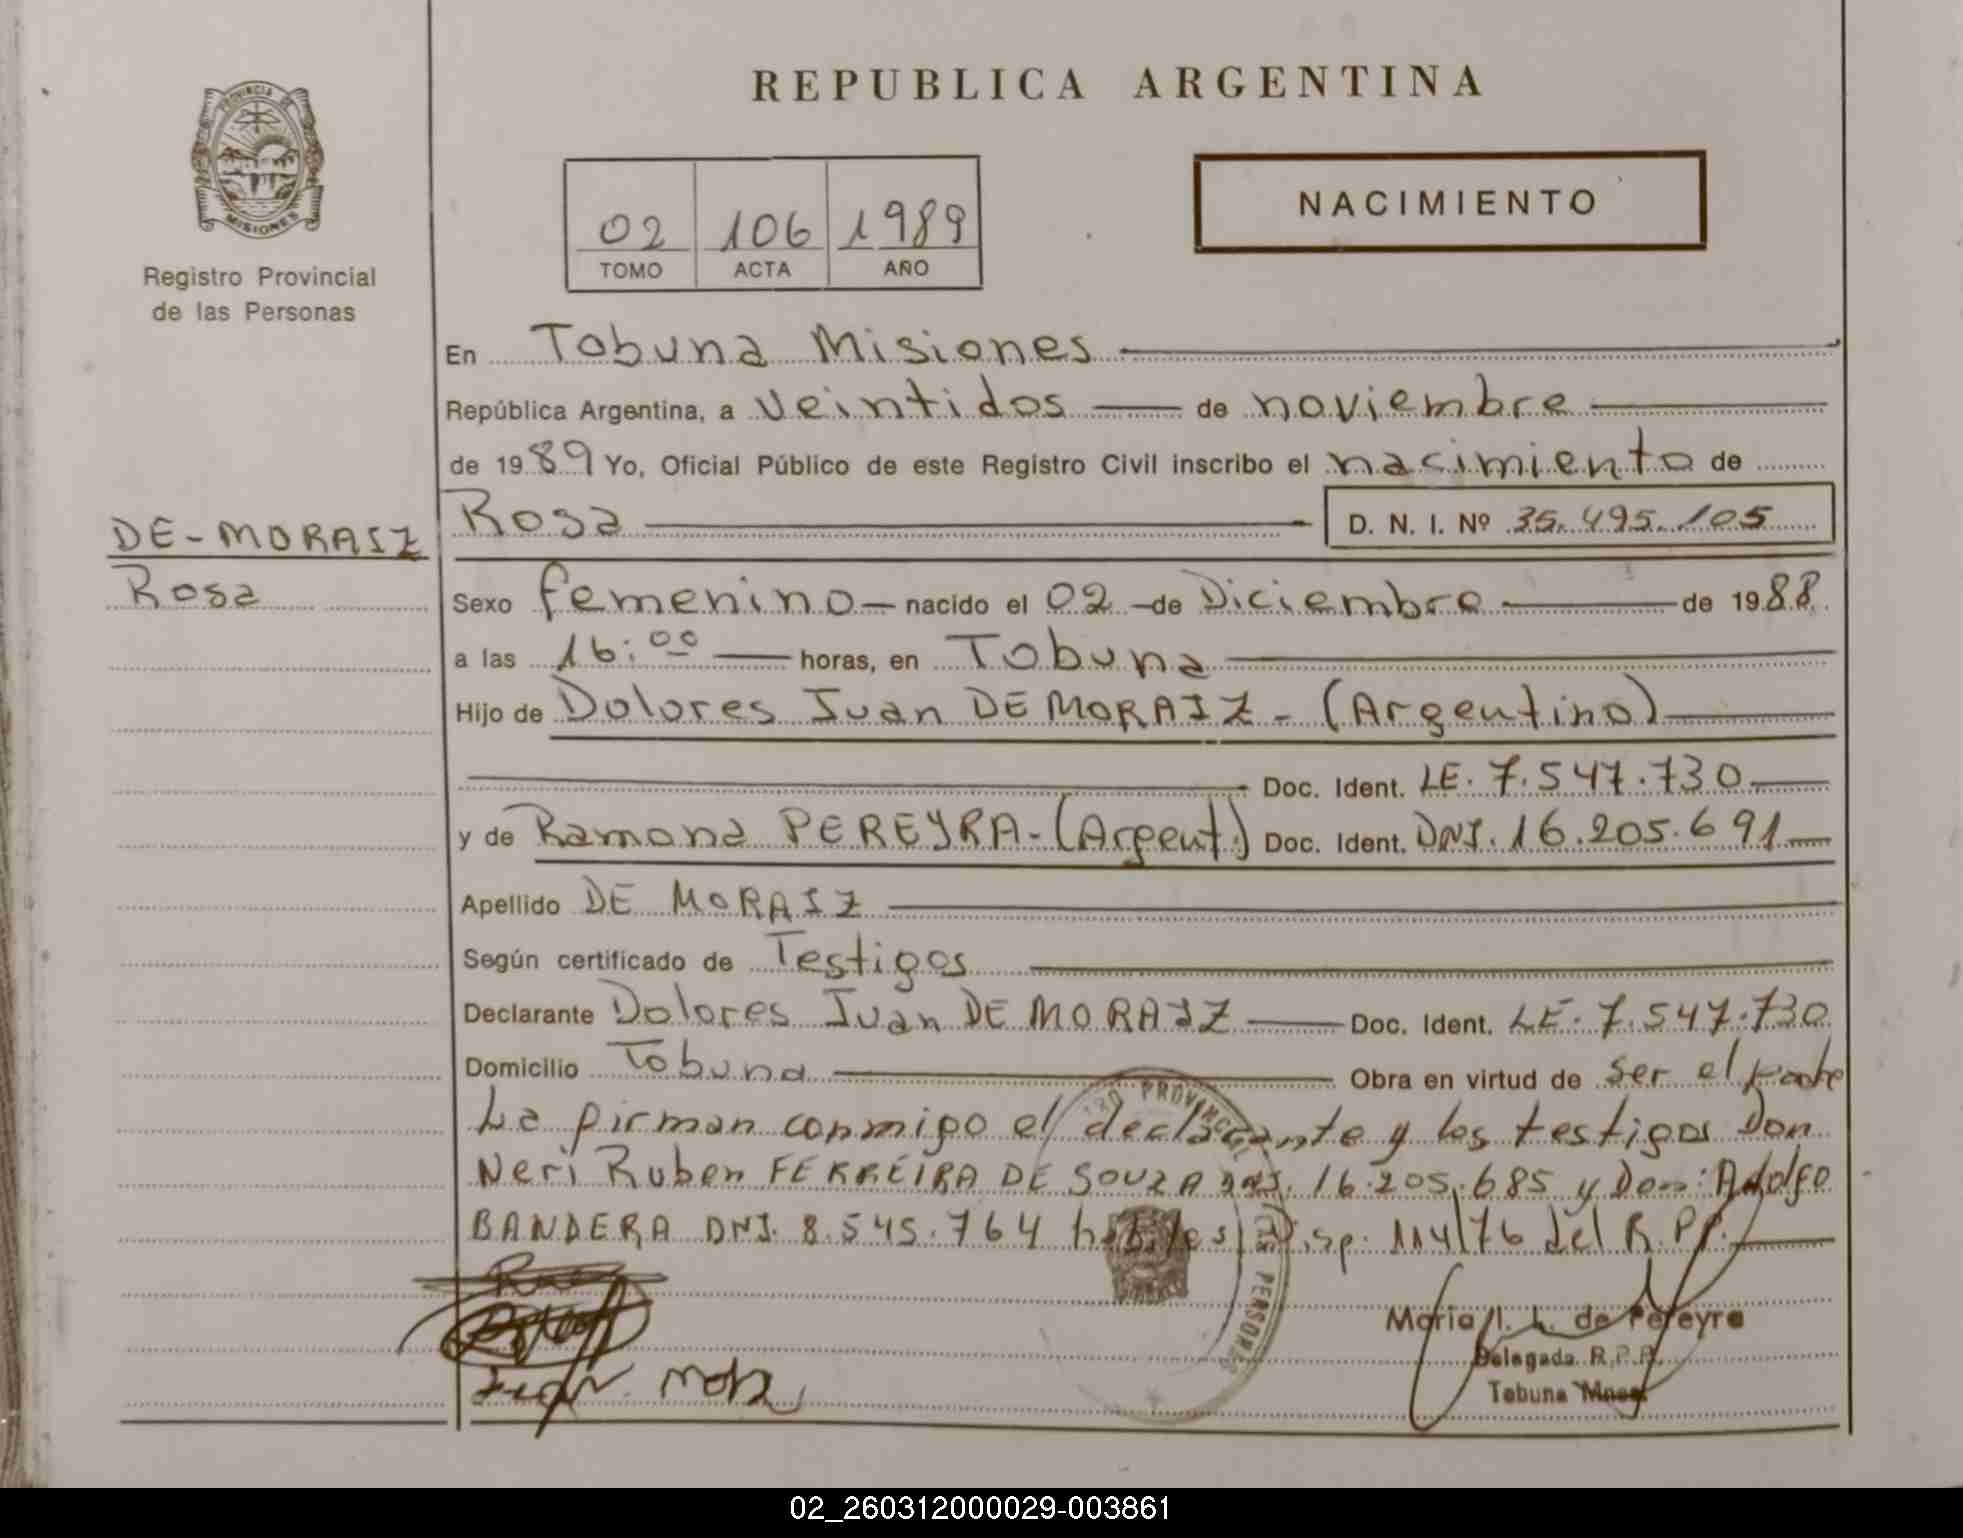 REPUBLICA ARGENTINA
PROVINCIA DE
MISIONES
Registro Provincial
de las Personas
NACIMIENTO
02 106 1989
TOMO ACTA AÑO
En Tobuna Misiones
República Argentina, a veintidos de noviembre
de 1989 Yo, Oficial Público de este Registro Civil inscribo el nacimiento de
DE-MORAIZ
Rosa
Rosa D. N. I. Nº 35.495.105
Sexo femenino nacido el 02 de Diciembre de 1988
a las 16:00 horas, en Tobuna
Hijo de Dolores Juan DE MORAIZ - (Argentino)
Doc. Ident. LE. 7.547.730
y de Ramona PEREYRA - (Argent.) Doc. Ident. DNI. 16.205.691
Apellido DE MORAIZ
Según certificado de Testigos
Declarante Dolores Juan DE MORAIZ Doc. Ident. LE. 7.547.730
Domicilio Tobuna Obra en virtud de ser el padre
La firman conmigo el declarante y los testigos Don
Neri Ruben FERREIRA DE SOUZA DNI. 16.205.685 y Don: Adolfo
BANDERA DNI. 8.545.764 habiles Disp. 114/76 del R.PP.
PROVINCIAL PERSONAS
Maria I. L. de Pereyra
Delegada R.P.P.
Tobuna Mnes.
02_260312000029-003861